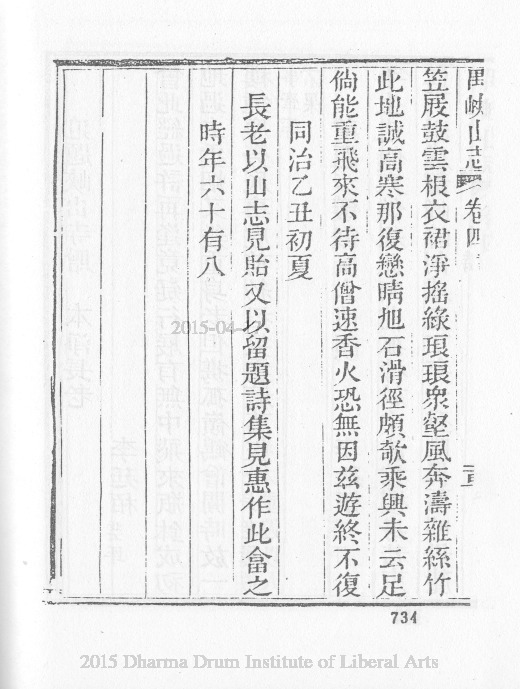 禺峽山志 卷四
笠屐鼓雲根衣裙淨搖綠琅琅衆壑風奔濤雜絲竹
此地誠高寒那復戀晴旭石滑徑頗欹乘興未云足
倘能重飛來不待高僧速香火恐無因茲遊終不復
同治乙丑初夏
長老以山志見貽又以留題詩集見惠作此畣之
時年六十有八
2015-04-
734
2015 Dharma Drum Institute of Liberal Arts